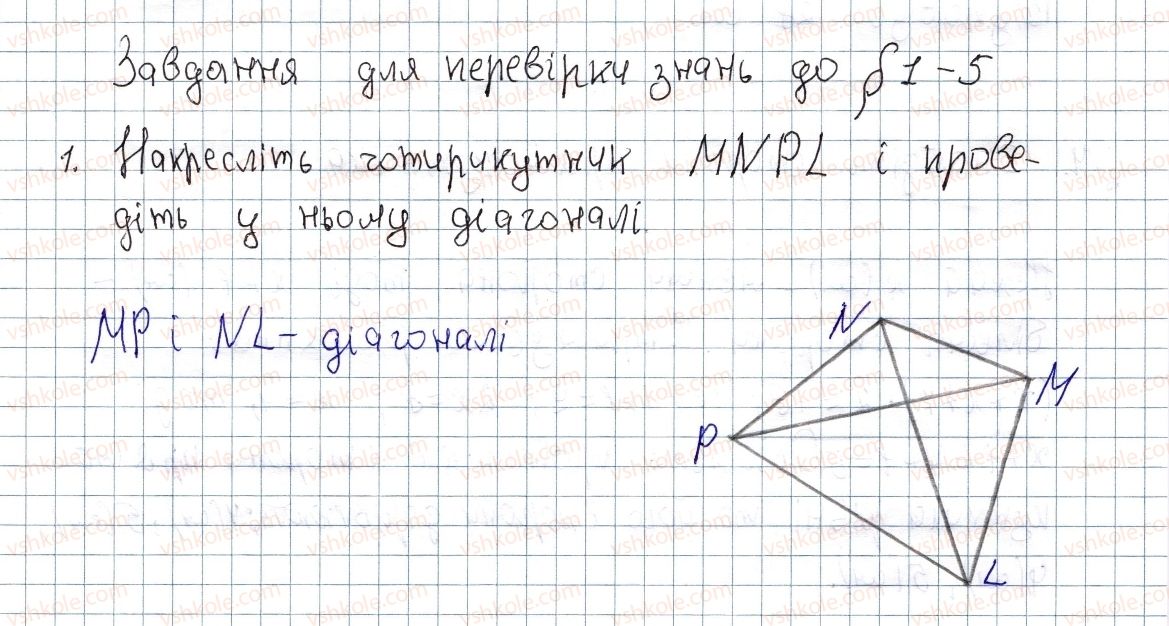 Завдання для перевірки знань до § 1-5
1. Накресліть чотирикутник MNPL і прове-
діть у ньому діагоналі.
MP і NL - діагоналі
N
M
P
L
vshkole.com